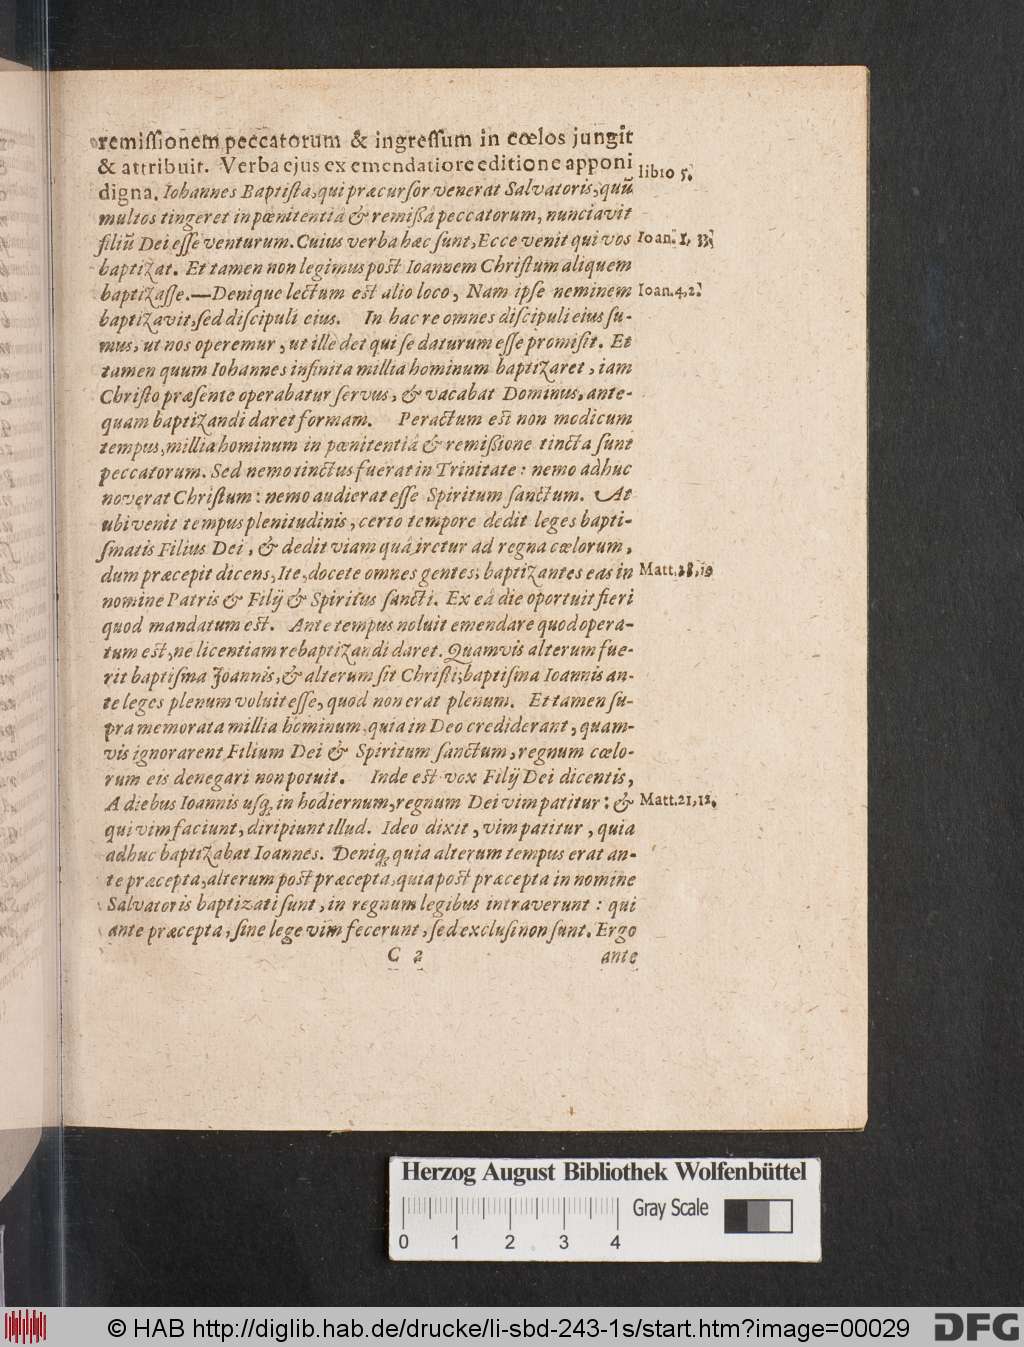 remissionem peccatorum & ingressum in cœlos jungit
& attribuit. Verba ejus ex emendatiore editione apponi
digna. Iohannes Baptista, qui præcursor venerat Salvatoris, quū
multos tingeret in pœnitentiâ & remißâ peccatorum, nunciavit
filiū Dei esse venturum. Cuius verba hæc sunt, Ecce venit qui vos
baptizat. Et tamen non legimus post Ioannem Christum aliquem
baptizasse.—Denique lectum est alio loco, Nam ipse neminem
baptizavit, sed discipuli eius. In hac re omnes discipuli eius su-
mus, ut nos operemur, ut ille det qui se daturum esse promisit. Et
tamen quum Iohannes infinita millia hominum baptizaret, iam
Christo præsente operabatur servus, & vacabat Dominus, ante-
quam baptizandi daret formam. Peractum est non modicum
tempus, millia hominum in pœnitentiâ & remißione tincta sunt
peccatorum. Sed nemo tinctus fuerat in Trinitate: nemo adhuc
noverat Christum: nemo audierat esse Spiritum sanctum. At
ubi venit tempus plenitudinis, certo tempore dedit leges bapti-
smatis Filius Dei, & dedit viam quâ iretur ad regna cœlorum,
dum præcepit dicens, Ite, docete omnes gentes, baptizantes eas in
nomine Patris & Filij & Spiritus sancti. Ex eâ die oportuit fieri
quod mandatum est. Ante tempus noluit emendare quod opera-
tum est, ne licentiam rebaptizandi daret. Quamvis alterum fue-
rit baptisma Joannis, & alterum sit Christi; baptisma Ioannis an-
te leges plenum voluit esse, quod non erat plenum. Et tamen su-
pra memorata millia hominum, quia in Deo crediderant, quam-
vis ignorarent Filium Dei & Spiritum sanctum, regnum cœlo-
rum eis denegari non potuit. Inde est vox Filij Dei dicentis,
A diebus Ioannis usq; in hodiernum, regnum Dei vim patitur: &
qui vim faciunt, diripiunt illud. Ideo dixit, vim patitur, quia
adhuc baptizabat Ioannes. Deniq; quia alterum tempus erat an-
te præcepta, alterum post præcepta, quia post præcepta in nomine
Salvatoris baptizati sunt, in regnum legibus intraverunt: qui
ante præcepta, sine lege vim fecerunt, sed exclusi non sunt. Ergo
C 2 ante
libro 5.
Ioan. 1, 33.
Ioan. 4, 2.
Matt. 28, 19
Matt. 21, 12.
Herzog August Bibliothek Wolfenbüttel
Gray Scale
0 1 2 3 4
© HAB http://diglib.hab.de/drucke/li-sbd-243-1s/start.htm?image=00029
DFG